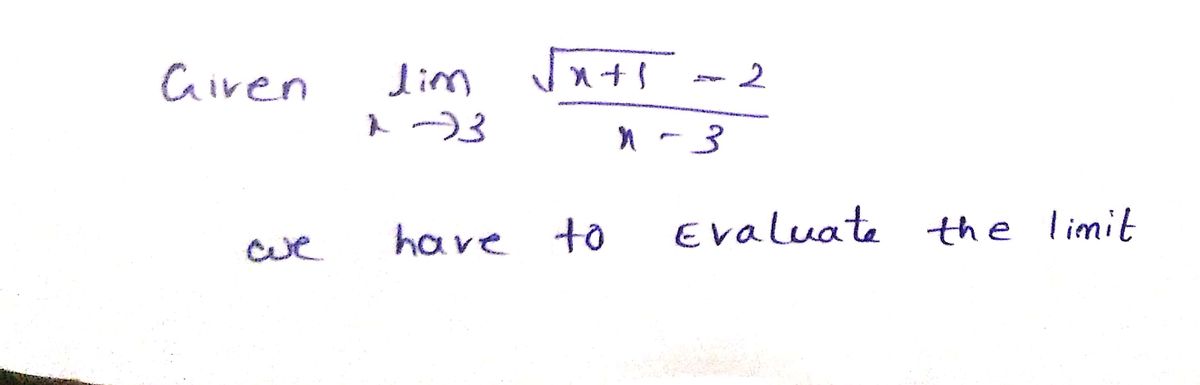 Given lim √x+1 - 2
x →3 x - 3
we have to Evaluate the limit